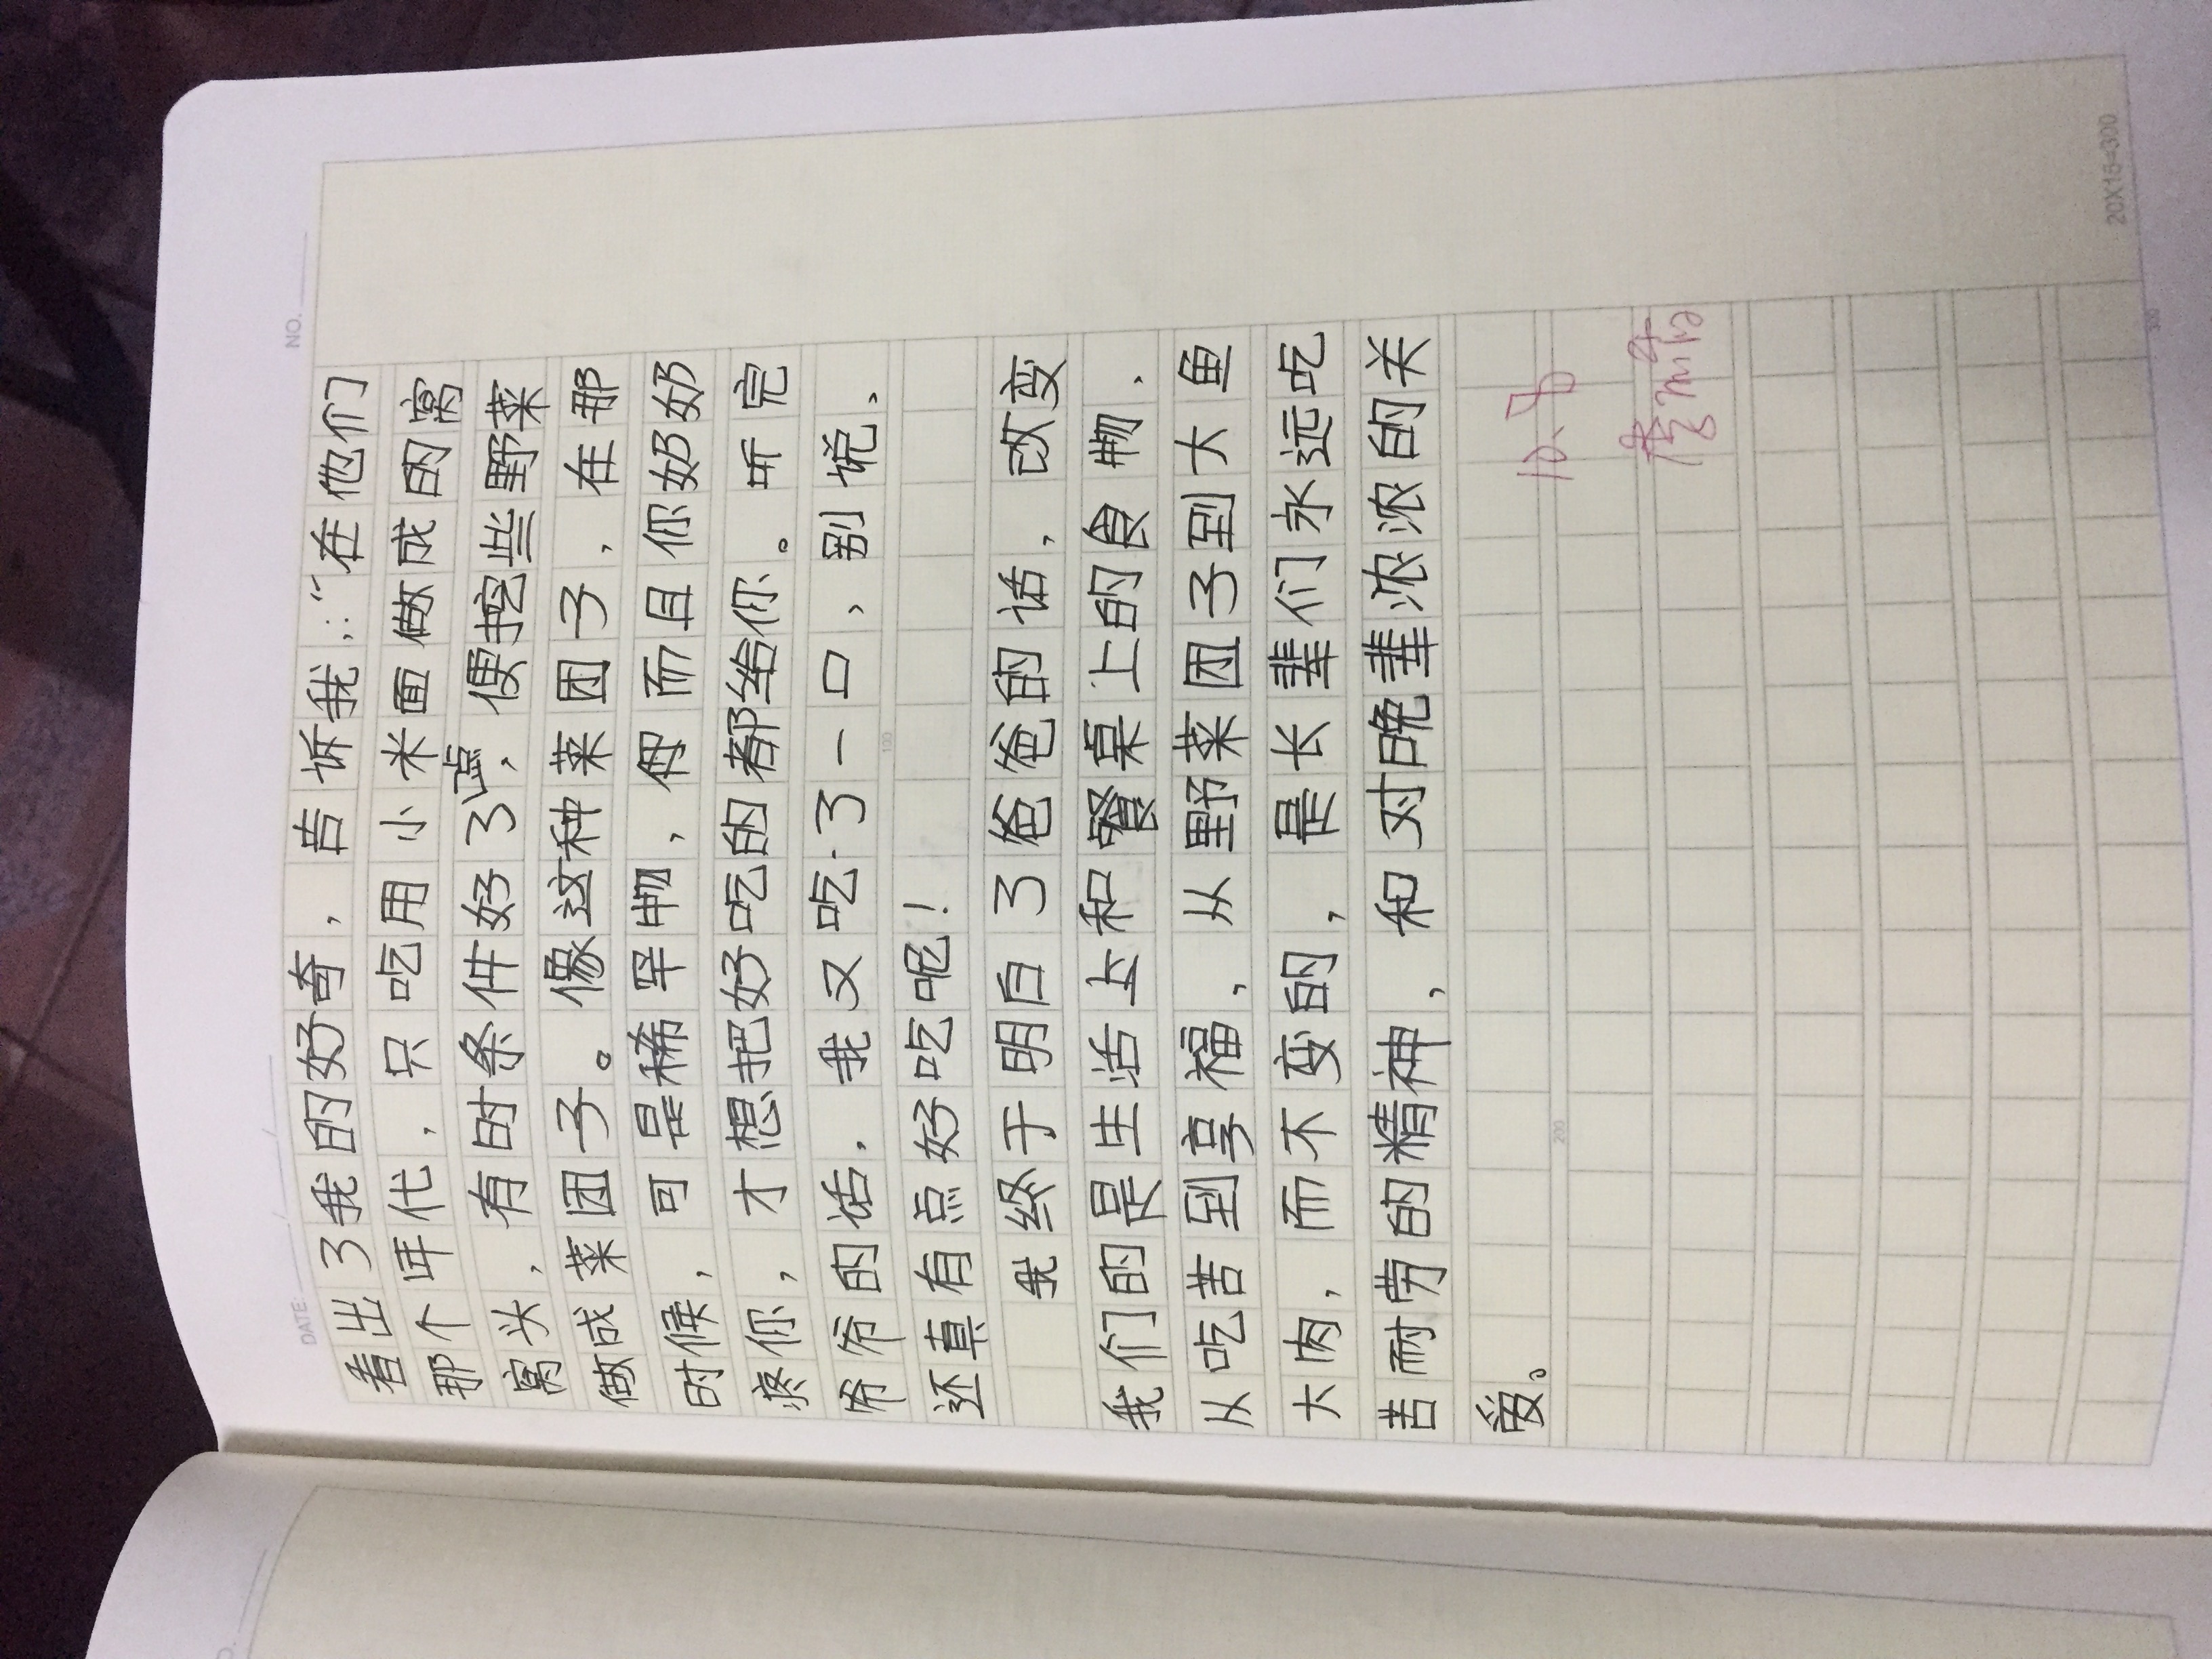 NO.
DATE: / /
看出了我的好奇，告诉我，:“在他们
那个年代，只吃用小米面做成的窝
窝头，有时条件好了点，便挖些野菜
做成菜团子。像这种菜团子，在那
时候，可是稀罕物，何而且你奶奶
疼你，才想把好吃的都给你。听完
爷爷的话，我又吃了一口，别说，
还真有点好吃呢！
100
我终于明白了爸爸的话，改变
我们的是生活上和餐桌上的食物，
从吃苦到享福，从野菜团子到大鱼
大肉，而不变的，是长辈们永远吃
苦耐劳的精神，和对晚辈浓浓的关
爱。
200
300
20X15=300